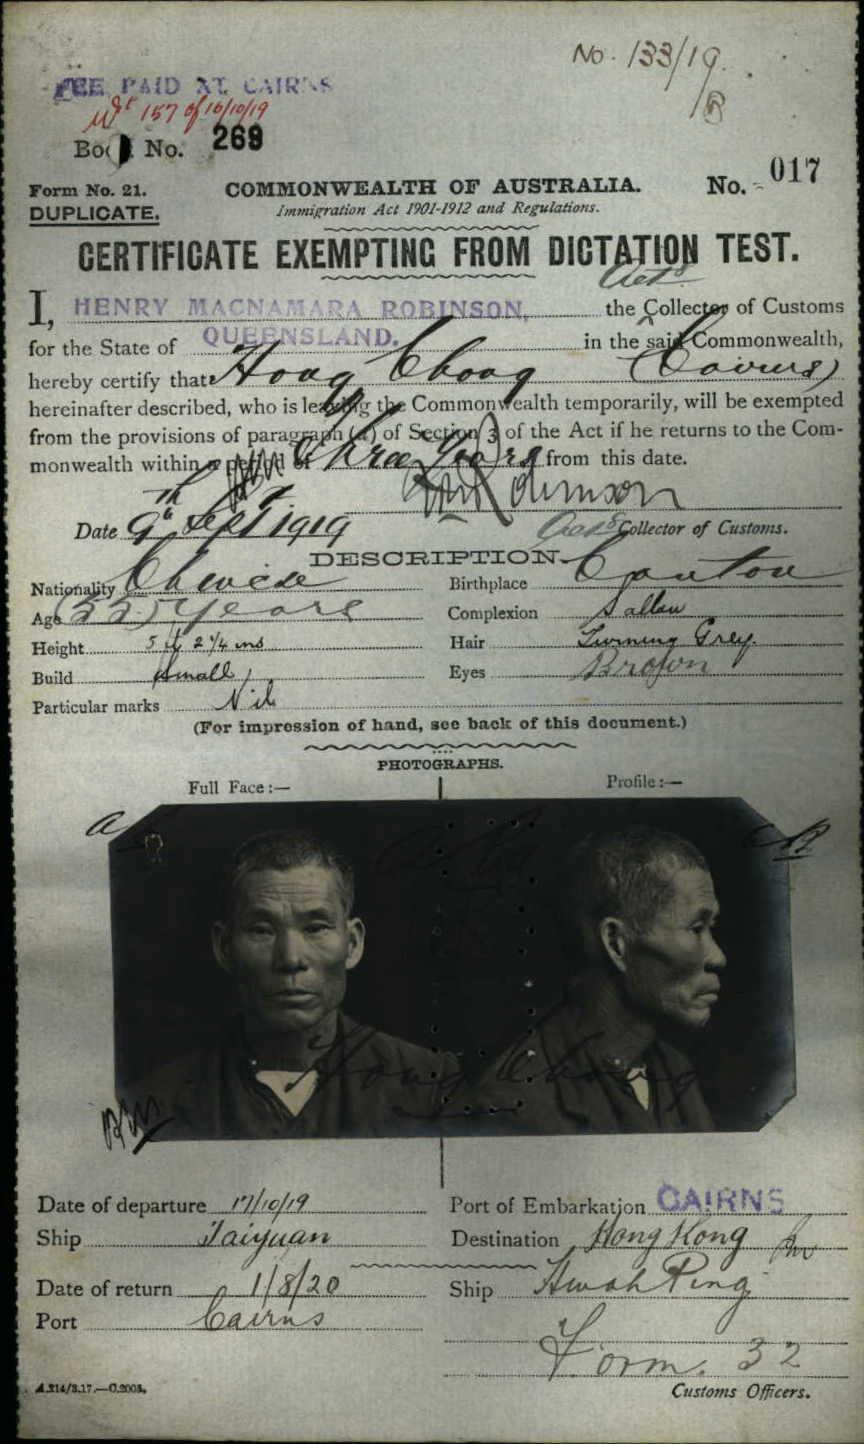 No. 133/19
FEE PAID AT CAIRNS
157 of 16/10/19
Book No. 269
No. 017
Form No. 21.
COMMONWEALTH OF AUSTRALIA.
DUPLICATE.
Immigration Act 1901-1912 and Regulations.
CERTIFICATE EXEMPTING FROM DICTATION TEST.
Actg
I, HENRY MACNAMARA ROBINSON, the Collector of Customs
for the State of QUEENSLAND. in the said Commonwealth,
hereby certify that Hong Chong (Cairns)
hereinafter described, who is leaving the Commonwealth temporarily, will be exempted
from the provisions of paragraph (a) of Section 3 of the Act if he returns to the Com-
monwealth within a period of Three Years from this date.
Robinson
Date 9th Sept 1919 Collector of Customs.
DESCRIPTION.
Nationality Chinese Birthplace Canton
Age 55 years Complexion Sallow
Height 5 ft 2 1/4 ins Hair Turning Grey.
Build Small Eyes Brown
Particular marks Nil
(For impression of hand, see back of this document.)
PHOTOGRAPHS.
Full Face :— Profile :—
Hong Chong
Date of departure 17/10/19 Port of Embarkation CAIRNS
Ship Taiyuan Destination Hong Kong
Date of return 1/8/20 Ship Hwah Ping
Port Cairns
Form. 32
A.214/3.17.—C.2003. Customs Officers.